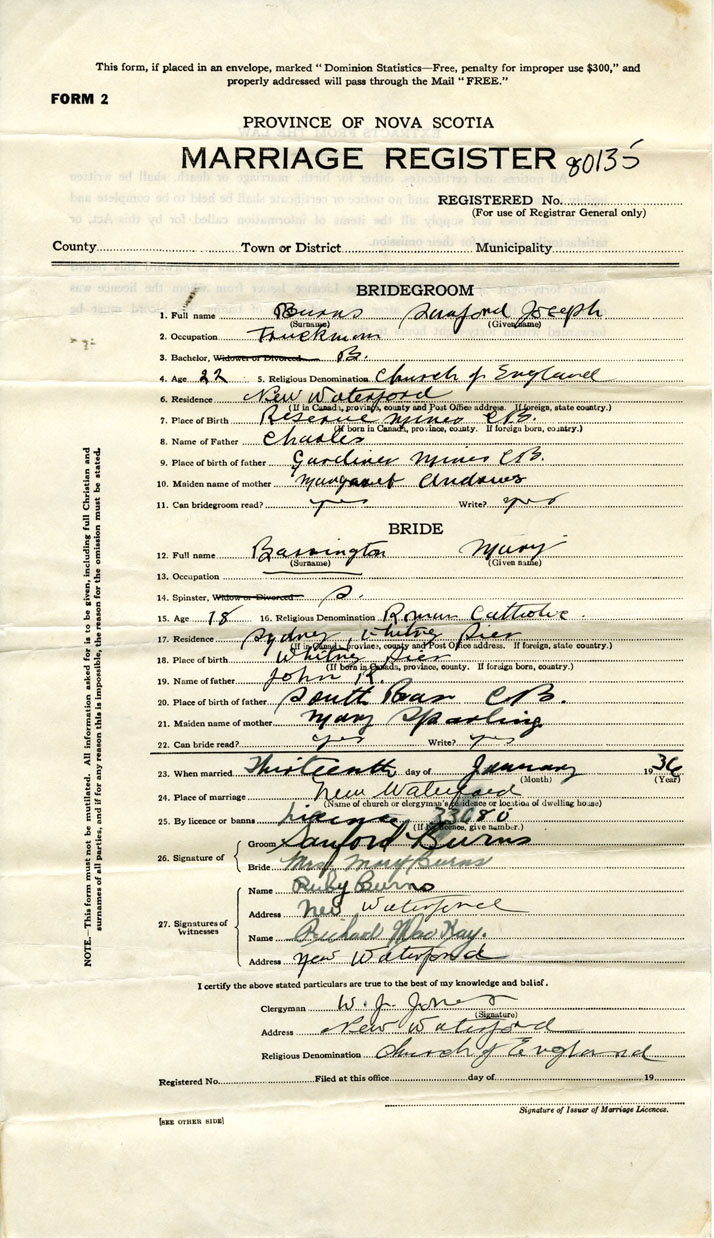 This form, if placed in an envelope, marked "Dominion Statistics—Free, penalty for improper use $300," and
properly addressed will pass through the Mail "FREE."
FORM 2
PROVINCE OF NOVA SCOTIA
MARRIAGE REGISTER 80135
REGISTERED No.
(For use of Registrar General only)
County Town or District Municipality
BRIDEGROOM
1. Full name Burns Sanford Joseph
(Surname) (Given name)
2. Occupation Truckman
3. Bachelor, Widower or Divorced B.
4. Age 22 5. Religious Denomination Church of England
6. Residence New Waterford
(If in Canada, province, county and Post Office address. If foreign, state country.)
7. Place of Birth Reserve Mines C.B.
(If born in Canada, province, county. If foreign born, country.)
8. Name of Father Charles
9. Place of birth of father Gardiner Mines C.B.
10. Maiden name of mother Margaret Andrews
11. Can bridegroom read? yes Write? yes
BRIDE
12. Full name Barrington Mary
(Surname) (Given name)
13. Occupation
14. Spinster, Widow or Divorced S.
15. Age 18 16. Religious Denomination Roman Catholic
17. Residence Sydney, Whitney Pier
(If in Canada, province, county and Post Office address. If foreign, state country.)
18. Place of birth Whitney Pier
(If born in Canada, province, county. If foreign born, country.)
19. Name of father John R.
20. Place of birth of father South Bar C.B.
21. Maiden name of mother Mary Sparling
22. Can bride read? yes Write? yes
23. When married Thirteenth day of January 1936
(Month) (Year)
24. Place of marriage New Waterford
(Name of church or clergyman's residence or location of dwelling house)
25. By licence or banns Licence 33080
(If by licence, give number.)
26. Signature of Groom Sanford Burns
Bride Mrs Mary Burns
27. Signatures of Witnesses Name Ruby Burns
Address New Waterford
Name Richard MacKay.
Address New Waterford
I certify the above stated particulars are true to the best of my knowledge and belief.
Clergyman W. J. Jones
(Signature)
Address New Waterford
Religious Denomination Church of England
Registered No. Filed at this office day of 19
Signature of Issuer of Marriage Licences.
[SEE OTHER SIDE]
NOTE.—This form must not be mutilated. All information asked for is to be given, including full Christian and
surnames of all parties, and if for any reason this is impossible, the reason for the omission must be stated.